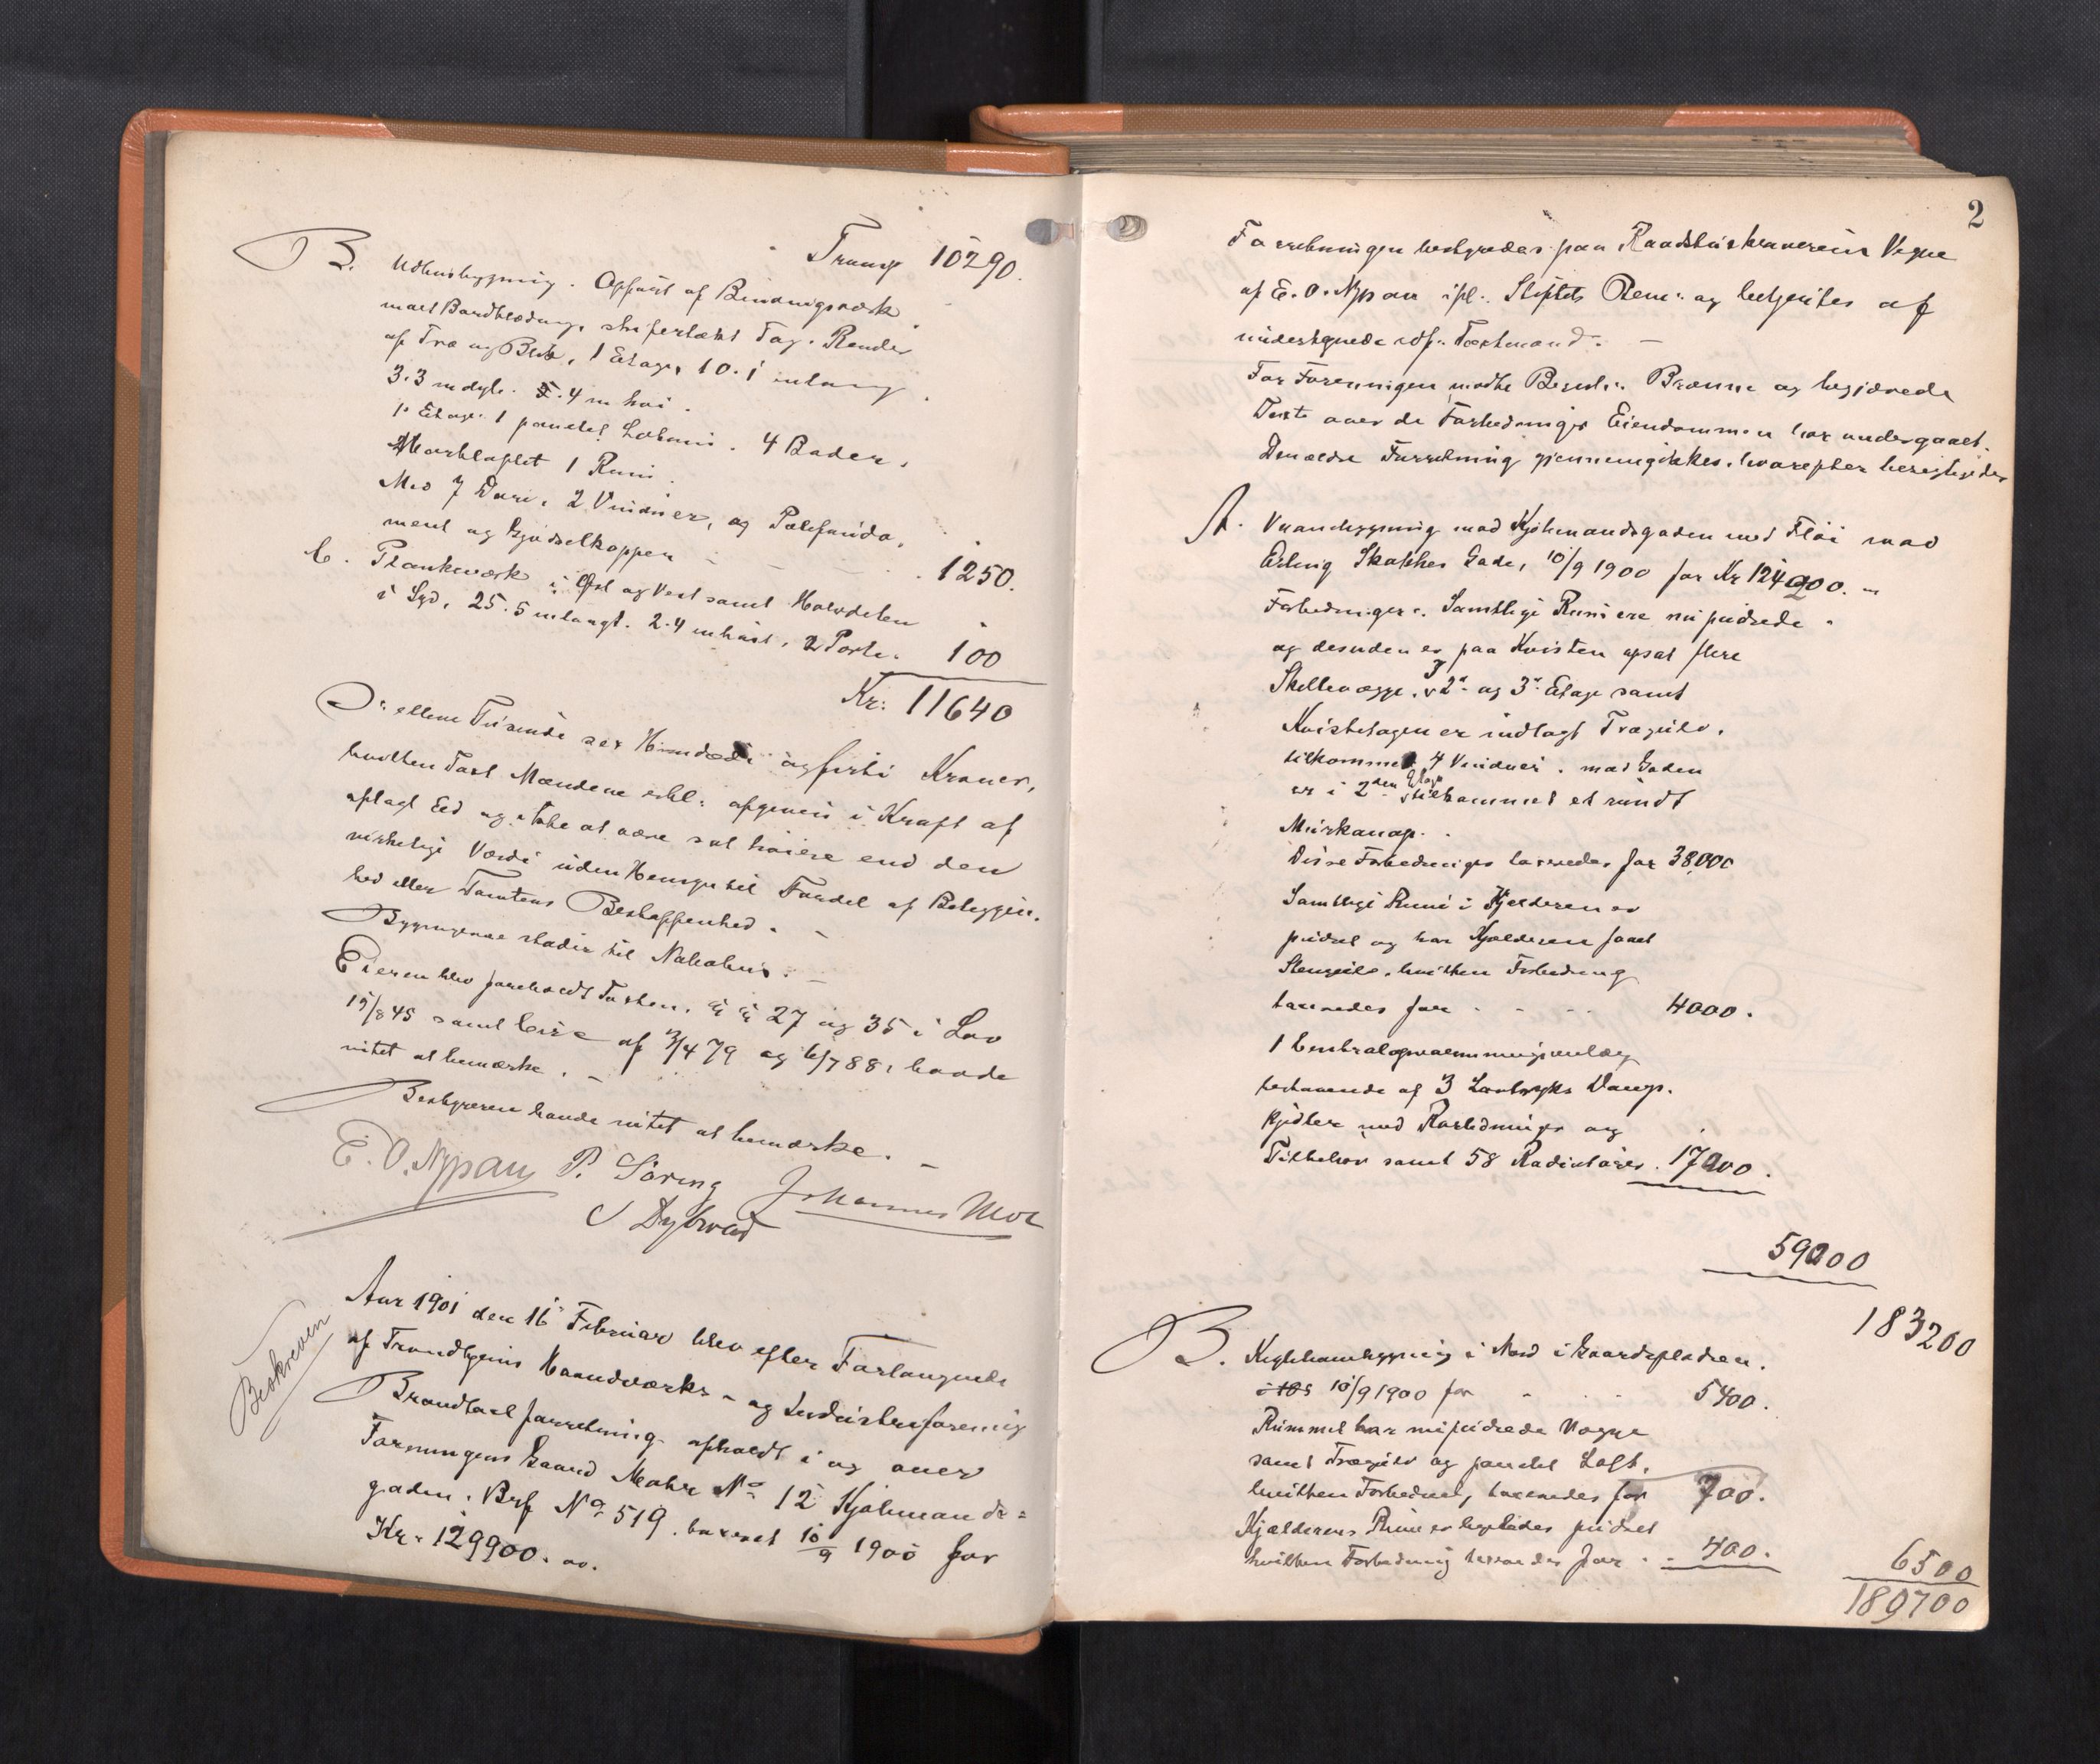 Transp 10290.
B. Udhusbygning. Opført af Bindingsværk
med Bordklædning, skifertækt Tag. Render
af Træ og Blik, 1 Etage, 10.1 m lang
3.3 m dyb. 5.4 m høi.
1. Etage. 1 panelet Lokum. 4 Boder.
Mørkloftet 1 Rum.
Med 7 Døre, 2 Vinduer, og Pølsfunda-
ment og Gjødselkopper - - - 1250.
C. Plankeværk i Øst og Vest samt Halvdelen
i Syd, 25.5 m langt. 2.4 m høit, 2 Porte. 100
Kr: 11640
D: elleve Tusinde sex Hundrede og førti Kroner,
hvilken Taxt Mændene erkl: afgiven i Kraft af
aflagt Eed og ikke at være sat høiere end den
virkelige Værdi uden Hensyn til Fordel af Beliggen-
hed eller Tomtens Beskaffenhed. -
Bygningerne støder til Nabohus. -
Eieren blev foreholdt Taxten, §§ 27 og 35 i Lov
19/8 45 samt Love af 3/4 79 og 6/7 88, havde
intet at bemærke. -
Bestyreren havde intet at bemærke. -
E. O. Nypan P. Søring Johannes Moe
Dybvad
Beskreven
Aar 1901 den 16 Februar blev efter Forlangende
af Trondhjems Haandværks- og Industriforening
Brandtaxtforretning afholdt i og over
Foreningens Gaard Matr No 12 Kjøbmands=
gaden. Brf No 519. taxeret 10/9 1900 for
Kr. 129900. oo.
2
Forretningen bestyredes paa Raadstuskriverens Vegne
af E. O. Nypan ifl. Stiftets Ren: og betjentes af
undertegnede edf. Taxtmænd. -
For Foreningen mødte Bestyr. Brønne og begjærede
Taxt over de Forbedringer Eiendommen har undergaaet.
Den ældre Forretning gjennemgikkes, hvorefter besigtigedes
A. Vaanbygning mod Kjøbmandsgaden med Fløi mod
Erling Skakkes Gade, 10/9 1900 for Kr 124200. -
Forbedringer: Samtlige Rum ere nu pudsede
og desuden er paa Kvisten opsat flere
Skillevægge. I 2den og 3die Etage samt
Kvistetagen er indlagt Trægulv,
tilkommet 4 Vinduer. mod Gaden
er i 2den Etage tilkommet et rundt
Murkanap.
Disse Forbedringer taxeredes for 38000
Samtlige Rum i Kjelderen er
pudset og har Kjælderen faaet
Stengulv, hvilken Forbedring
taxeredes for - - - 4000.
1 Centralopvarmningsanlæg
bestaaende af 3 Lavtryks Damp-
kjedler med Rørledninger og
Tilbehør samt 58 Radiatorer. 17000.
59000
183200
B. Kjøkkenbygning i Nord i Gaardspladsen.
10/9 1900 for - - - 5400.
Rummet har nupudsede Vægge
samt Trægulv og panelet Loft,
hvilken Forbedring taxeredes for 700.
Kjælderens Rum er ligeledes pudset
hvilken Forbedring taxeredes for - - 400.
6500
189700